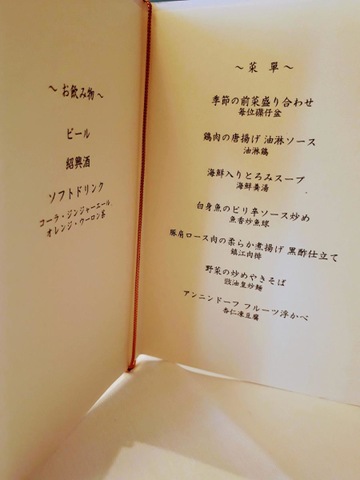 ～お飲み物～
ビール
紹興酒
ソフトドリンク
コーラ・ジンジャーエール、
オレンジ・ウーロン茶
～菜單～
季節の前菜盛り合わせ
毎位碟仔盆
鶏肉の唐揚げ 油淋ソース
油淋鶏
海鮮入りとろみスープ
海鮮羹湯
白身魚のピリ辛ソース炒め
魚香炒魚球
豚肩ロース肉の柔らか煮揚げ 黒酢仕立て
鎮江肉排
野菜の炒めやきそば
豉油皇炒麺
アンニンドーフ フルーツ浮かべ
杏仁凍豆腐